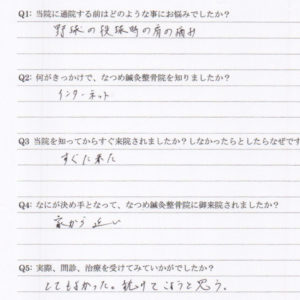 Q1: 当院に通院する前はどのような事にお悩みでしたか？
野球の投球時の肩の痛み
Q2: 何がきっかけで、なつめ鍼灸整骨院を知りましたか？
インターネット
Q3 当院を知ってからすぐ来院されましたか？しなかったらとしたらなぜです
すぐに来た
Q4: なにが決め手となって、なつめ鍼灸整骨院に御来院されましたか？
家から近い
Q5: 実際、問診、治療を受けてみていかがでしたか？
とてもよかった。続けてこようと思う。